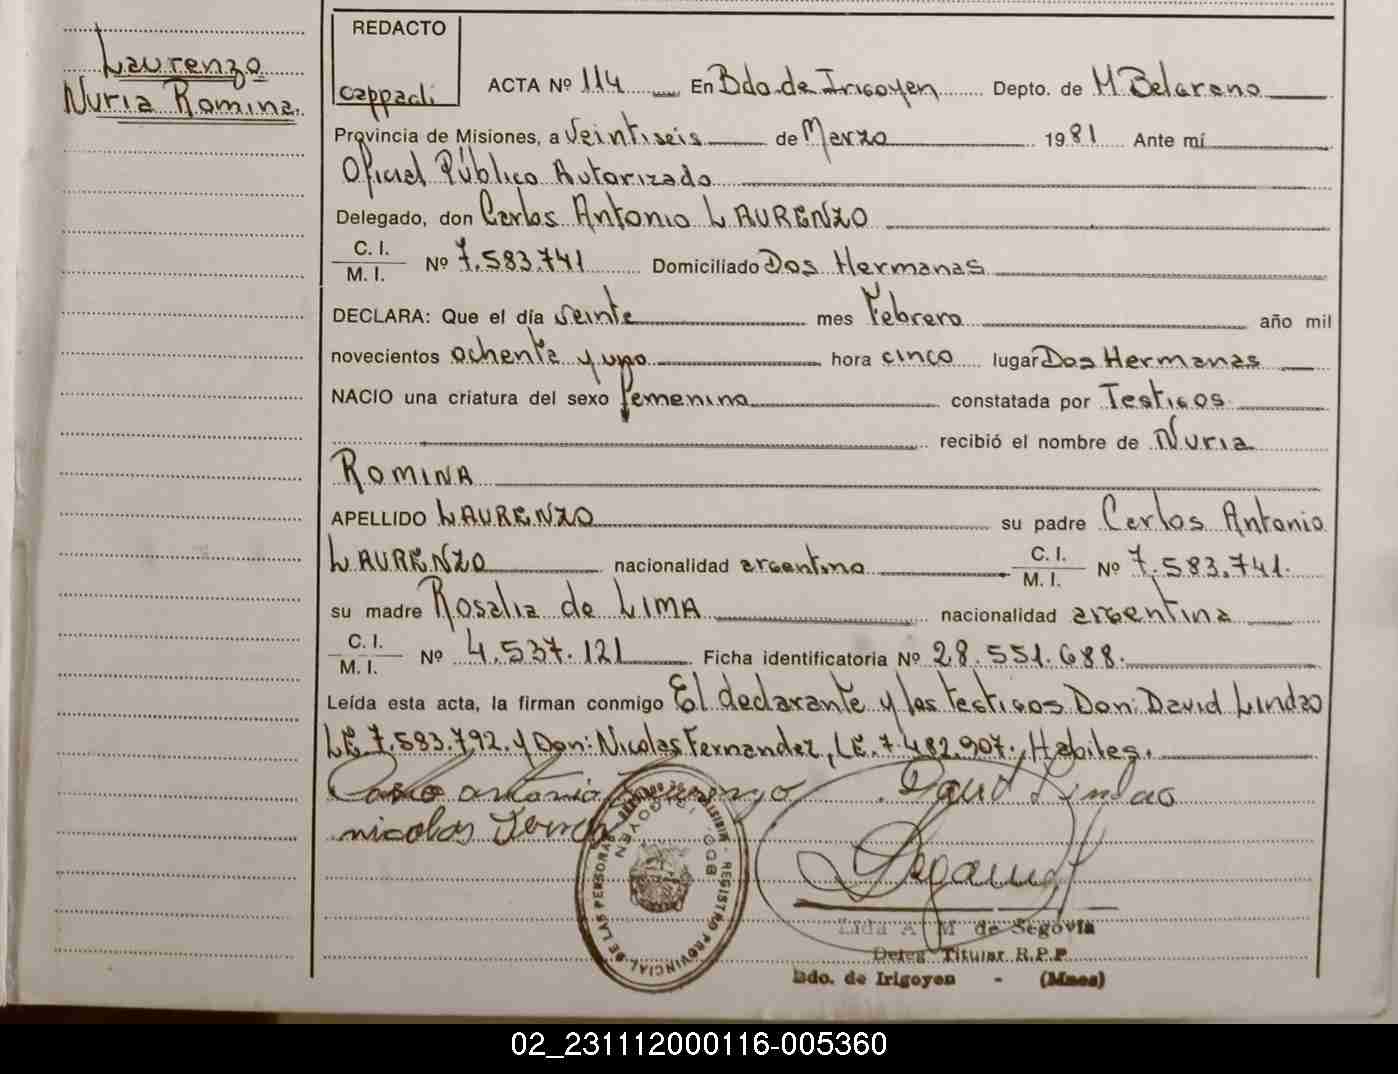 Laurenzo
Nuria Romina.
REDACTO
cappadi
ACTA Nº 114 En Bdo. de Irigoyen Depto. de M Belgrano
Provincia de Misiones, a veintiseis de Marzo 1981 Ante mí
Oficial Público Autorizado
Delegado, don Carlos Antonio LAURENZO
C. I.
M. I. Nº 7.583.741 Domiciliado Dos Hermanas
DECLARA: Que el día veinte mes Febrero año mil
novecientos ochenta y uno hora cinco lugar Dos Hermanas
NACIO una criatura del sexo femenino constatada por Testigos.
recibió el nombre de Nuria
ROMINA
APELLIDO LAURENZO su padre Carlos Antonio
LAURENZO nacionalidad argentina C. I.
M. I. Nº 7.583.741.
su madre Rosalia de LIMA nacionalidad argentina
C. I.
M. I. Nº 4.537.121 Ficha identificatoria Nº 28.551.688.
Leída esta acta, la firman conmigo El declarante y los testigos Don: David Lindao
LE.7.583.792. y Don: Nicolas Fernandez, LE.7.482.907., Habiles.
Carlo antonio Laurenzo David Lindao
nicolas
REGISTRO PROVINCIAL DE LAS PERSONAS
BDO. IRIGOYEN
Lida A M de Segovia
Deleg Titular R.P.P
Bdo. de Irigoyen - (Mnes)
02_231112000116-005360